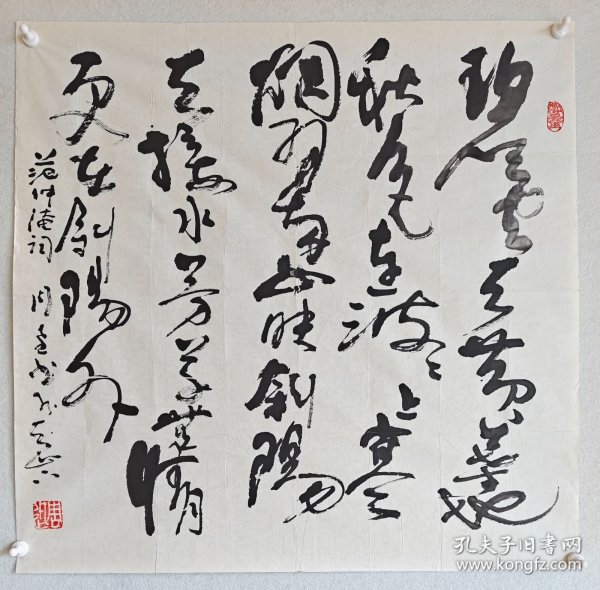 碧雲天黄葉地
秋色連波々上寒
烟翠山映斜陽
天接水芳草無情
更在斜陽外
范仲淹詞
孔夫子旧書网
www.kongfz.com